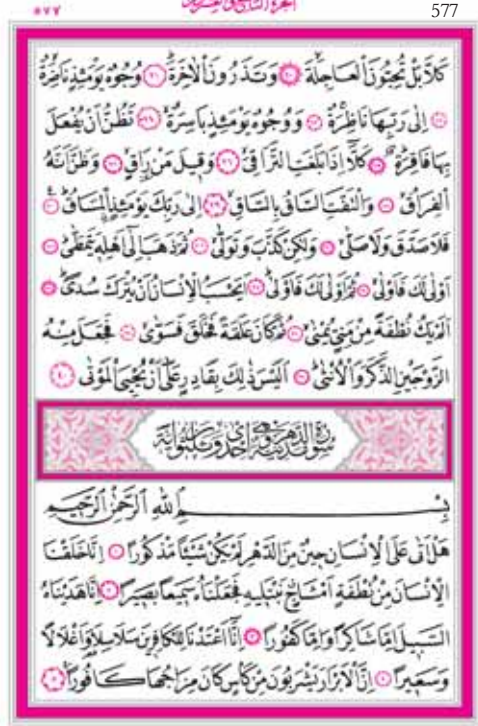 ٥٧٧ الجزء التاسع والعشرون 577
كَلَّا بَلْ تُحِبُّونَ الْعَاجِلَةَ ﴿٢٠﴾ وَتَذَرُونَ الْاٰخِرَةَ ﴿٢١﴾ وُجُوهٌ يَوْمَئِذٍ نَاضِرَةٌ
﴿٢٢﴾ اِلٰى رَبِّهَا نَاظِرَةٌ ﴿٢٣﴾ وَوُجُوهٌ يَوْمَئِذٍ بَاسِرَةٌ ﴿٢٤﴾ تَظُنُّ اَنْ يُفْعَلَ
بِهَا فَاقِرَةٌ ﴿٢٥﴾ كَلَّا اِذَا بَلَغَتِ التَّرَاقِيَ ﴿٢٦﴾ وَقِيلَ مَنْ رَاقٍ ﴿٢٧﴾ وَظَنَّ اَنَّهُ
الْفِرَاقُ ﴿٢٨﴾ وَالْتَفَّتِ السَّاقُ بِالسَّاقِ ﴿٢٩﴾ اِلٰى رَبِّكَ يَوْمَئِذٍ الْمَسَاقُ ﴿٣٠﴾
فَلَا صَدَّقَ وَلَا صَلّٰى ﴿٣١﴾ وَلٰكِنْ كَذَّبَ وَتَوَلّٰى ﴿٣٢﴾ ثُمَّ ذَهَبَ اِلٰى اَهْلِهِ يَتَمَطّٰى ﴿٣٣﴾
اَوْلٰى لَكَ فَاَوْلٰى ﴿٣٤﴾ ثُمَّ اَوْلٰى لَكَ فَاَوْلٰى ﴿٣٥﴾ اَيَحْسَبُ الْاِنْسَانُ اَنْ يُتْرَكَ سُدًى ﴿٣٦﴾
اَلَمْ يَكُ نُطْفَةً مِنْ مَنِيٍّ يُمْنٰى ﴿٣٧﴾ ثُمَّ كَانَ عَلَقَةً فَخَلَقَ فَسَوّٰى ﴿٣٨﴾ فَجَعَلَ مِنْهُ
الزَّوْجَيْنِ الذَّكَرَ وَالْاُنْثٰى ﴿٣٩﴾ اَلَيْسَ ذٰلِكَ بِقَادِرٍ عَلٰى اَنْ يُحْيِيَ الْمَوْتٰى ﴿٤٠﴾
سورة الدهر مدنية وهي احدى وثلثون اية
بِسْمِ اللّٰهِ الرَّحْمٰنِ الرَّحِيمِ
هَلْ اَتٰى عَلَى الْاِنْسَانِ حِينٌ مِنَ الدَّهْرِ لَمْ يَكُنْ شَيْئًا مَذْكُورًا ﴿١﴾ اِنَّا خَلَقْنَا
الْاِنْسَانَ مِنْ نُطْفَةٍ اَمْشَاجٍ نَبْتَلِيهِ فَجَعَلْنَاهُ سَمِيعًا بَصِيرًا ﴿٢﴾ اِنَّا هَدَيْنَاهُ
السَّبِيلَ اِمَّا شَاكِرًا وَاِمَّا كَفُورًا ﴿٣﴾ اِنَّا اَعْتَدْنَا لِلْكَافِرِينَ سَلَاسِلَا وَاَغْلَالًا
وَسَعِيرًا ﴿٤﴾ اِنَّ الْاَبْرَارَ يَشْرَبُونَ مِنْ كَاْسٍ كَانَ مِزَاجُهَا كَافُورًا ﴿٥﴾